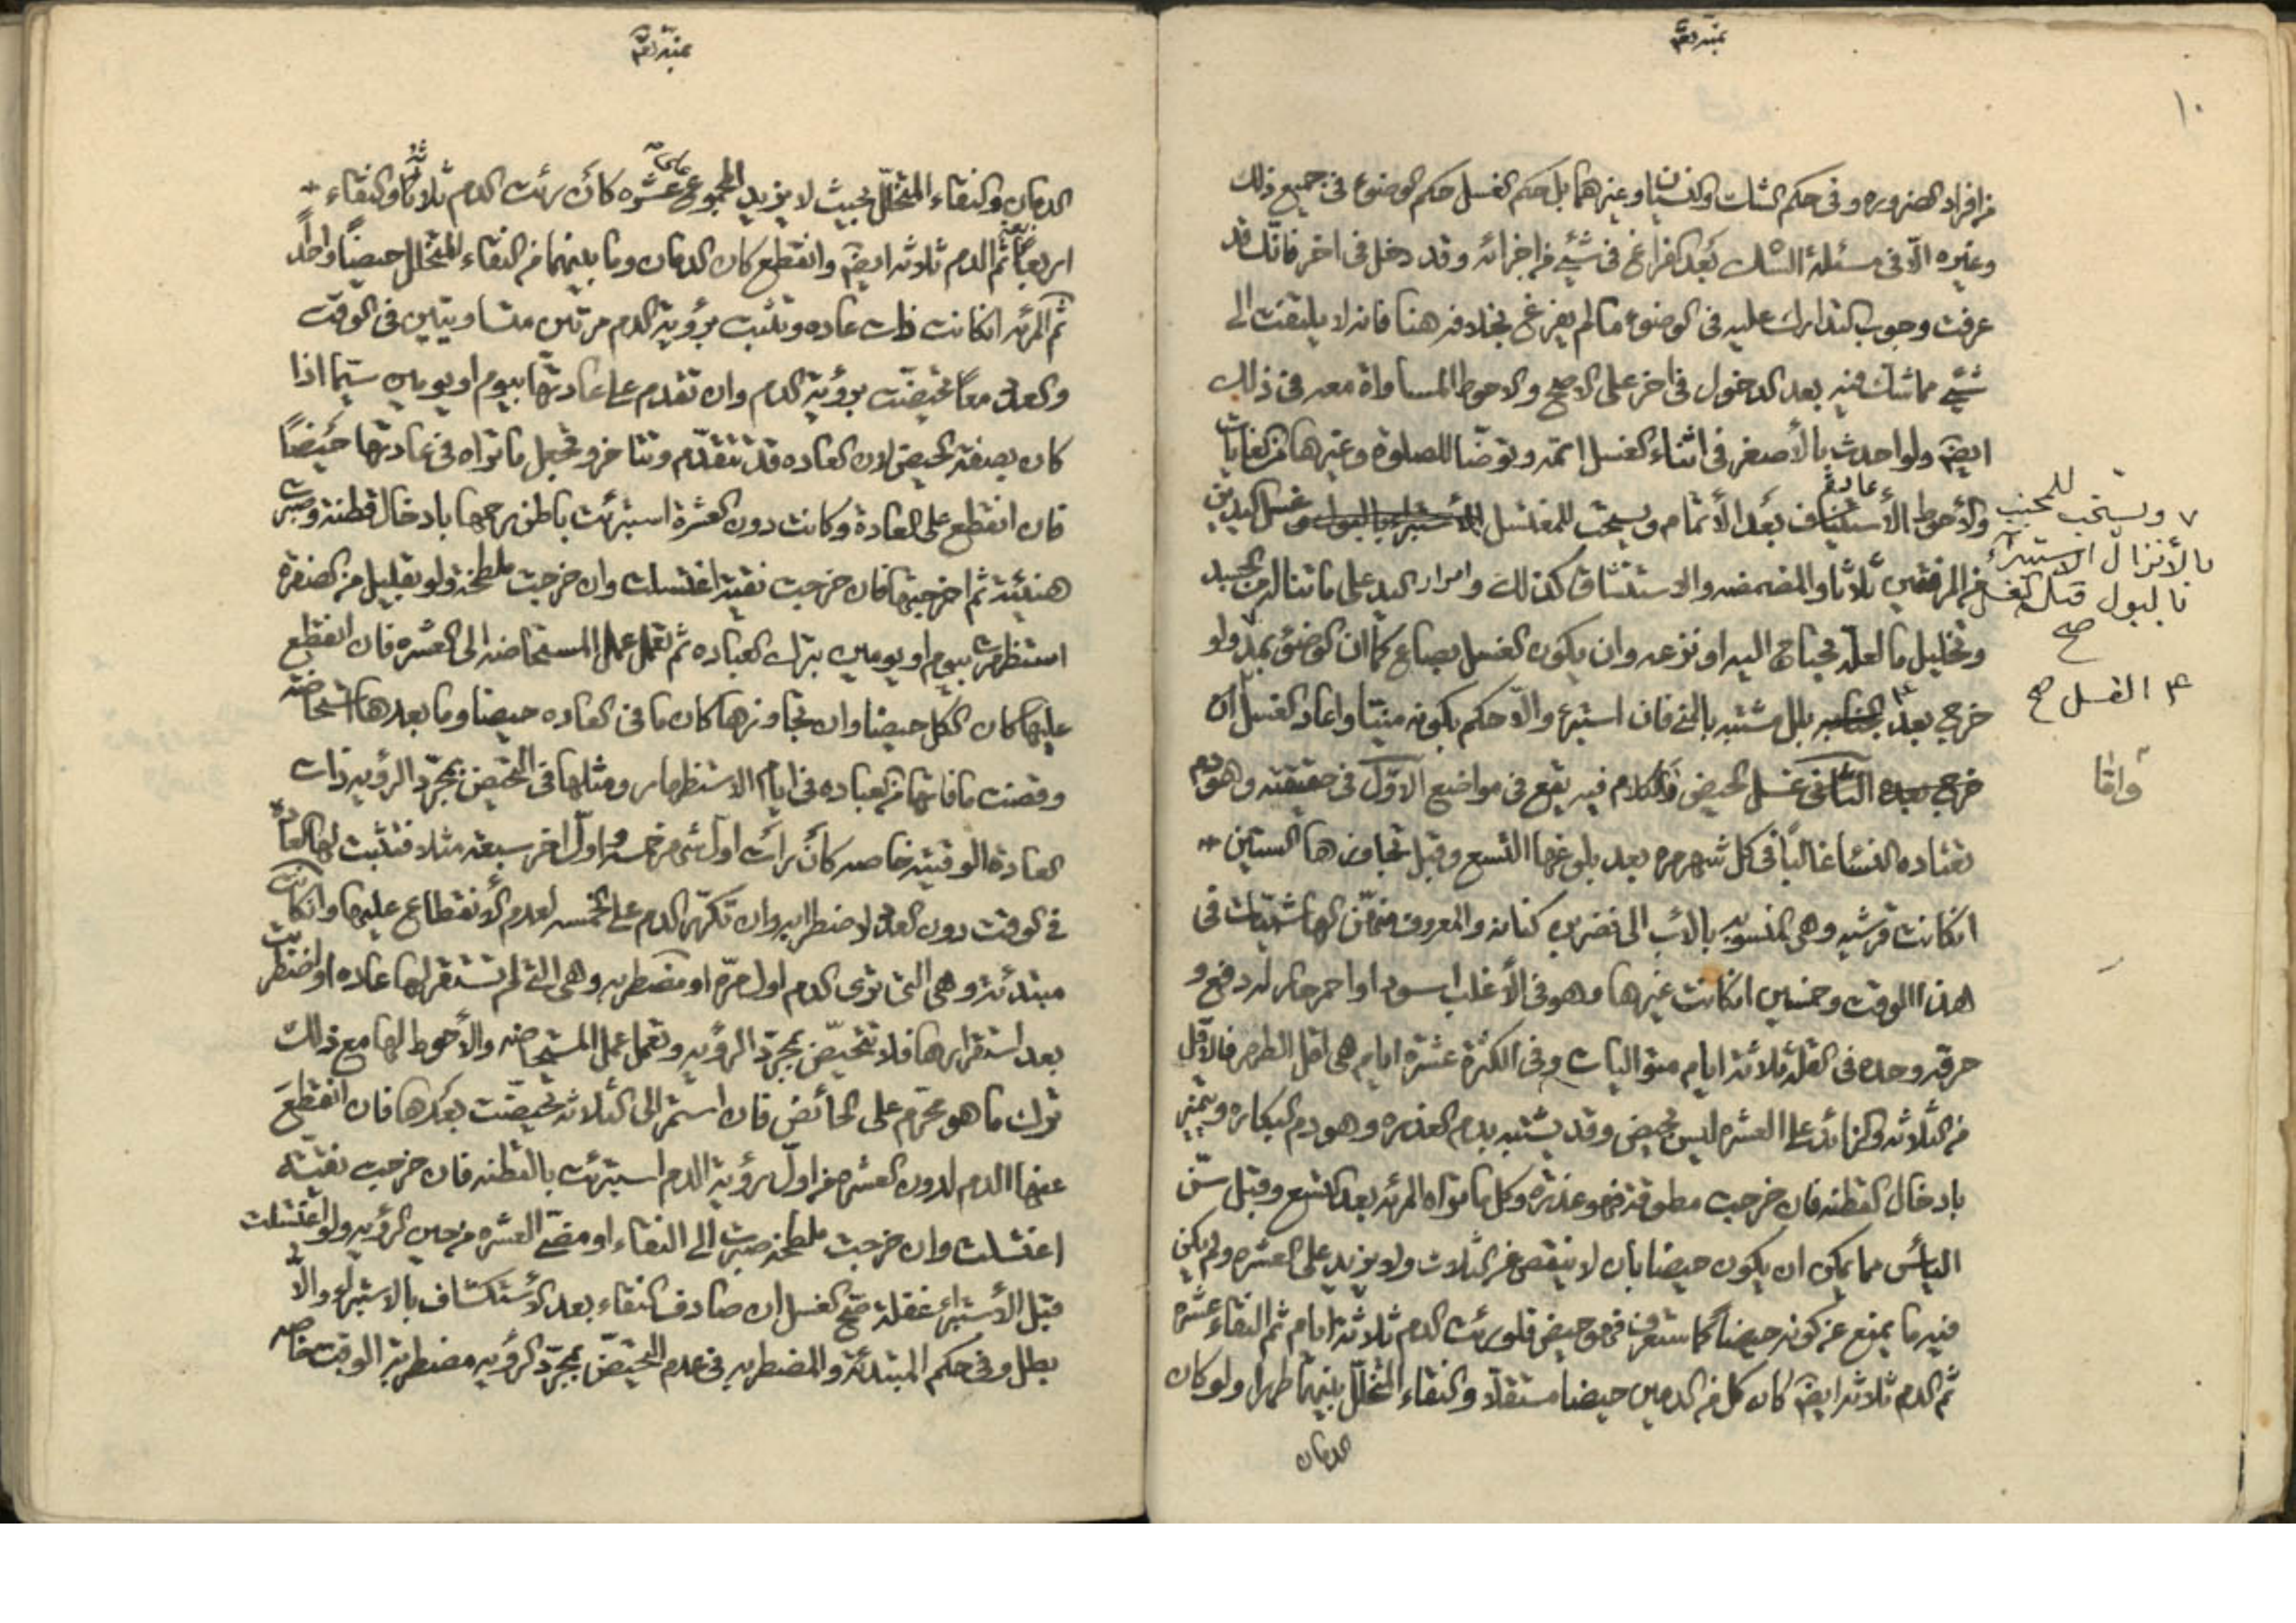 ١٠
من افراد الضروره وفى حكم الشك والنسيان وغيرهما بل حكم الغسل حكم الوضوء فى جميع ذلك
وغيره الّا فى مسئلة الشك بَعد الفراغ فى شئ من اجزائه وقد دخل فى اخر فانّك قد
عرفت وجوب التدارك عليه فى الوضوء ما لم يفرغ بخلافه هنا فانه لا يلتفت الى
شئ مما شك فيه بعد الدخول فى اخر على الاصح والاحوط المساواة معه فى ذلك
ايضا ولو احدث بالأصغر فى اثناء الغسل اتمّه وتوضّا للصلوة وغيرها من الغايات
والأحوط الأستيناف بَعد الأتمام ويستحب للمغتسل الأستبراء بالبول وغسل اليدين
من المرفقين ثلاثا والمضمضه والاستنشاق كذلك وامرار اليد على ما تناله من الجسد
وتخليل ما لعلّه يحتاج اليه او نزعه وان يكون الغسل بصاع كما ان الوضوء بمدّ ولو
خرج بعد الجنابه بلل مشتبه بالمنى فان استبرء والّا حكم بكونه منيّا واعاد الغسل ان
خرج بعده الثّانى غسل الحيض والكلام فيه يقع فى مواضع الاوّل فى حقيقته وهو دم
تعتاده النسا غالبًا فى كل شهر مره بعد بلوغها التسع وقبل تجاوزها الستين
انكانت قرشيه وهى المنسوبه بالاب الى نضر بن كنانه والمعروف منهنّ الهاشميّات فى
هذا الوقت وخمسين انكانت غيرها وهو فى الأغلب اسود او احمر حار له دفع و
حرقه وحده فى القلّة ثلاثة ايام متواليات وفى الكثرة عشرة ايام هى اقل الطهر فالاقل
من الثلاثه والزائد على العشره ليس بحيض وقد يشتبه بدم العذره وهو دم البكاره ويتميز
بادخال القطنه فان خرجت مطوقة فهو عذرة وكل ما تراه المرئه بعد التسع وقبل سنّ
اليأس مما يمكن ان يكون حيضا بان لا ينقص عن الثلاث ولا يزيد على العشره ولم يكن
فيه ما يمنع عن كونه حيضًا كما ستعرف فهو حيض فلو رئت الدم ثلاثة ايام ثم النقاء عشره
ثم الدم ثلاثه ايضا كان كل من الدمين حيضا مستقلّا والنقاء المتخلّل بينهما طهرا ولو كان
الدمان
ويستحب للمجنب
بالأنزال الاستبراء
بالبول قبل الغسل
صح
الغسل صح
الدمان والنقاء المتخلّل بحيث لا يزيد المجموع على عشره كان رئت الدم ثلاثًا والنقاء
اربعًا ثم الدم ثلاثه ايضا وانقطع كان الدمان وما بينهما من النقاء المتخلل حيضًا واحدًا
ثم المرئه انكانت ذات عاده وتثبت برؤية الدم مرتين متساويتين فى الوقت
والعدد معًا تحيضت برؤية الدم وان تقدم على عادتها بيوم او يومين سيّما اذا
كان بصفة الحيض لان العاده قد تتقدّم وتتاخر وتجعل ما تراه فى عادتها حيضًا
فان انقطع على العادة وكانت دون العشرة استبرئت باطن رحمها بادخال قطنة وصبرت
هنيئة ثم اخرجتها فان خرجت نقية اغتسلت وان خرجت ملطخة ولو بقليل من الصفرة
استظهرت بيوم او يومين بترك العباده ثم تعمل عمل المستحاضه الى العشره فان انقطع
عليها كان الكل حيضا وان تجاوزها كان ما فى العاده حيضا وما بعدها استحاضة
وقضت ما فاتها من العباده فى ايام الاستظهار ومثلها فى التحيض بمجرّد الرؤيه ذات
العادة الوقتية خاصه كأن رأت اول شهر خمسة واوّل اخر سبعة مثلا فتثبت لها العادة
فى الوقت دون العدد لاضطرابه وان تكرّر الدم على الخمسه لعدم الأنقطاع عليها وانكانت
مبتدئة وهى التى ترى الدم اول مرّه او مضطربه وهى التى لم تستقر لها عاده او اضطربت
بعد استقرارها فلا تتحيّض بمجرّد الرؤيه وتعمل عمل المستحاضه والأحوط لها مع ذلك
ترك ما هو محرّم على الحائض فان استمر الى الثلاثه تحيضت بعدها فان انقطع
عنها الدم لدون العشره من اوّل رؤية الدم استبرئت بالقطنه فان خرجت نقيّة
اغتسلت وان خرجت ملطخة صبرت الى النقاء او مضىّ العشره من حين الرؤيه ولو اغتسلت
قبل الأستبراء غفلة صحّ الغسل ان صادف النقاء بعد الأستكشاف بالاستبراء والّا
بطل وفى حكم المبتدئة والمضطربه فى عدم التحيّض بمجرّد الرؤيه مضطربة الوقت خاصه